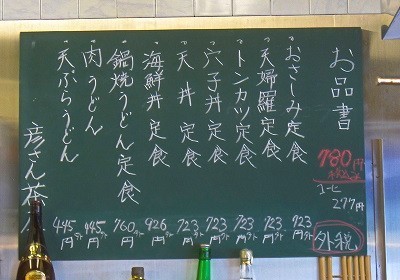 お品書
780円
コーヒ
277円
外税
おさしみ定食 923円
天婦羅定食 723円
トンカツ定食 723円
穴子丼定食 723円
天丼定食 723円
海鮮丼定食 926円
鍋焼うどん定食 760円
肉うどん 445円
天ぷらうどん 445円
彦さん